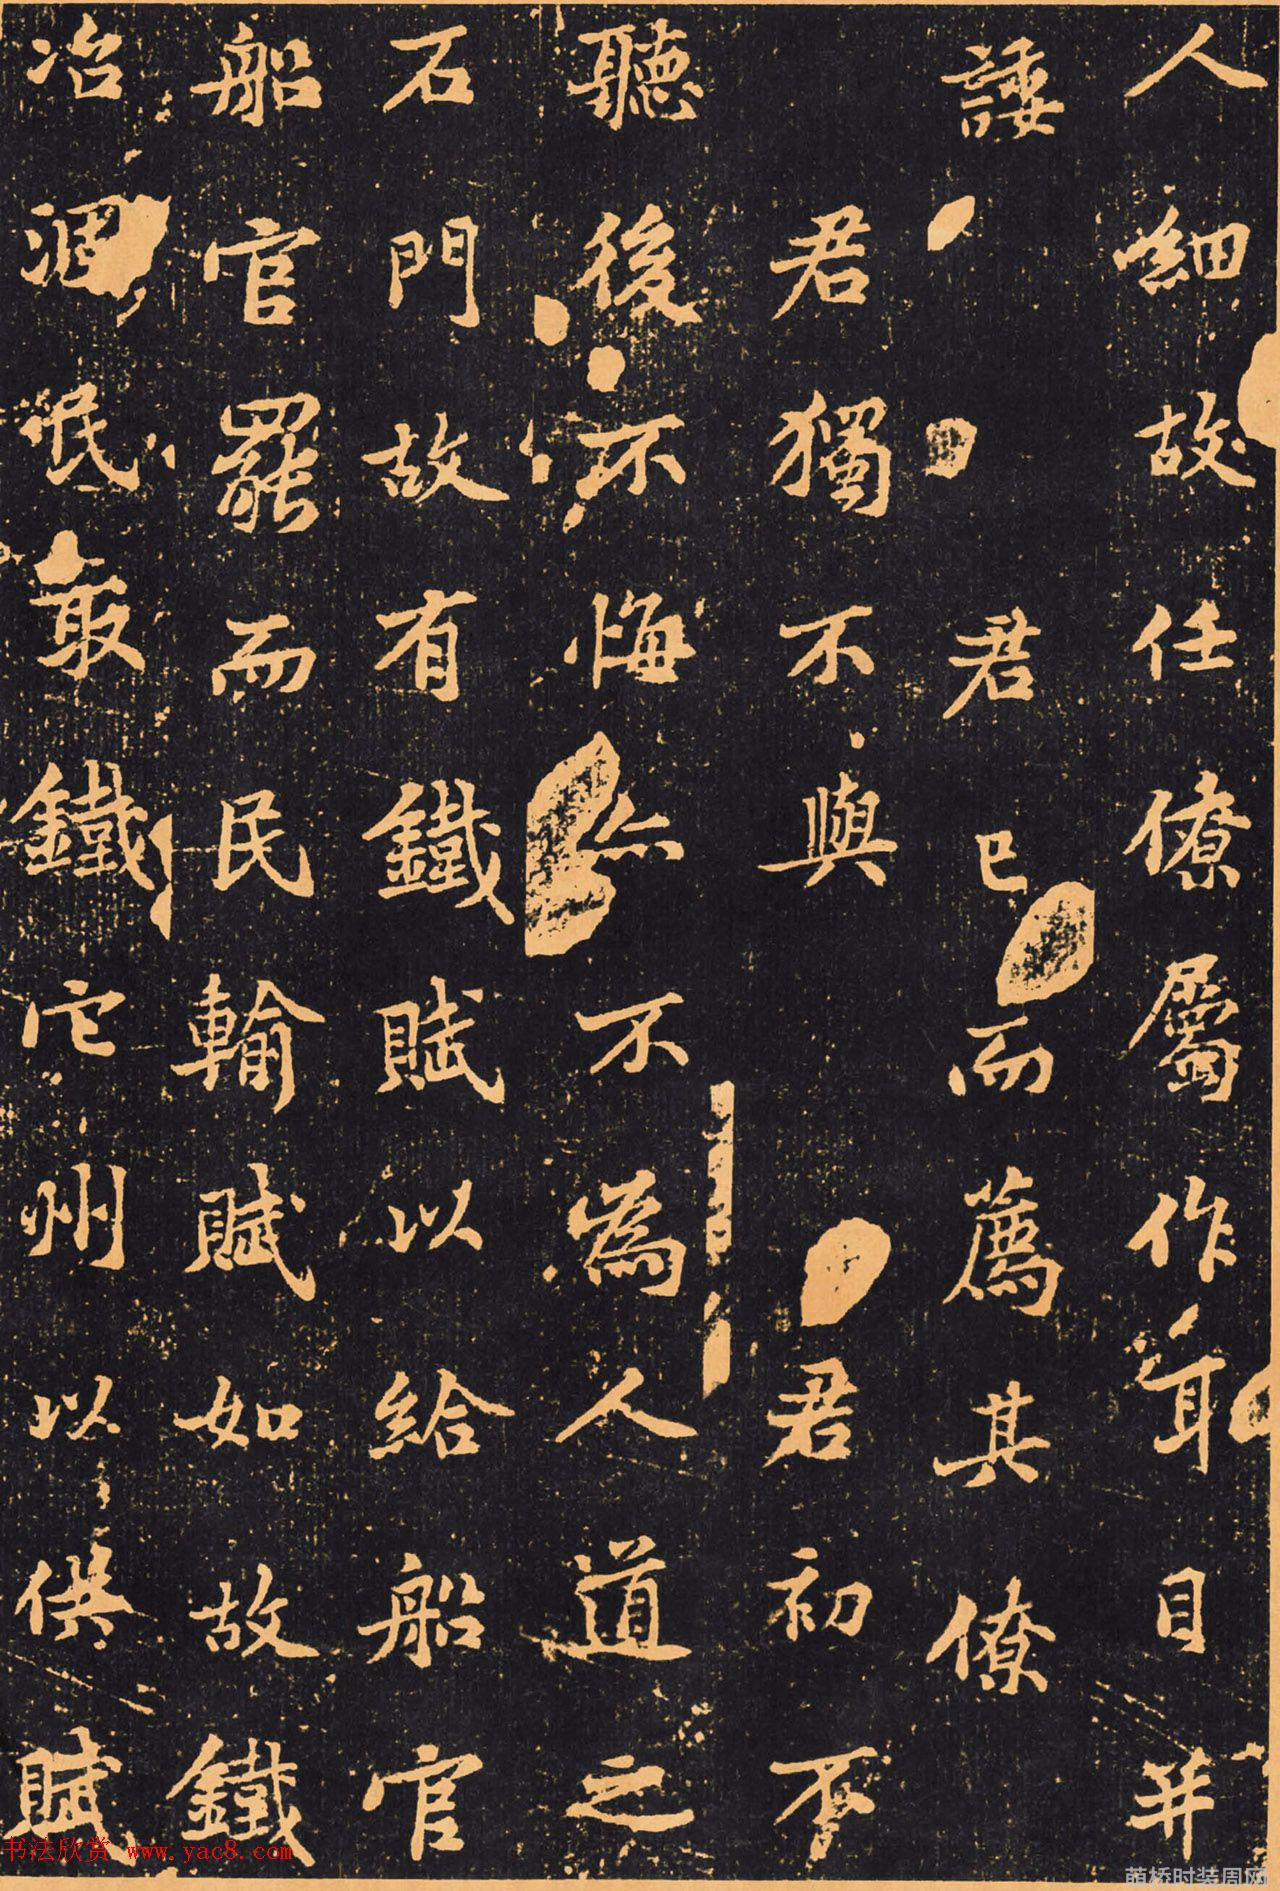 人細故任僚屬作耳目并
諉君已而薦其僚
君獨不與君初不
聽後不悔亦不為人道之
石門故有鐵賦以給船官
船官罷而民輸賦如故鐵
冶涸民取鐵它州以供賦
书法欣赏 www.yac8.com
萌桥时装周网